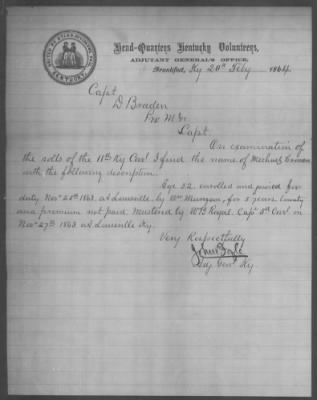 Head-Quarters Kentucky Volunteers,
ADJUTANT GENERAL'S OFFICE,
Frankfort, Ky 20th Feby 1864
KENTUCKY
Capt
D Braden
Pro M Gr
Capt
On examination of
the rolls of the 11th Ky Cav I find the name of
with the following description
Age 32 enrolled and joined for
duty Novr 25th 1863 at Louisville by Wm Munson, for 3 years bounty
and premium not paid. Mustered by Wm Royal Capt 5th Cav on
Novr 27th 1863 at Louisville Ky.
Very Respectfully
John Boyle
Adj Genl Ky